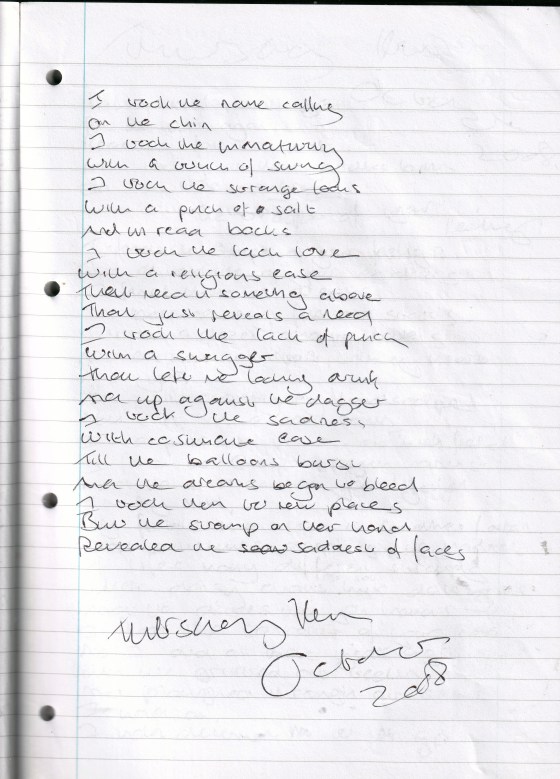 I took the name calling
on the chin
I took the immaturity
with a touch of swing
I took the strange looks
with a pinch of a salt
And un read books
I took the lack love
with a religious ease
That need is something above
That just reveals a need
I took the lack of punch
with a swagger
that left me laying drunk
And up against the dagger
I took the sadness
with casmune ease
Till the balloons burst
And the dreams began to bleed
I took them to new places
But the stamp on her hand
Revealed the sadness of faces
October
2008